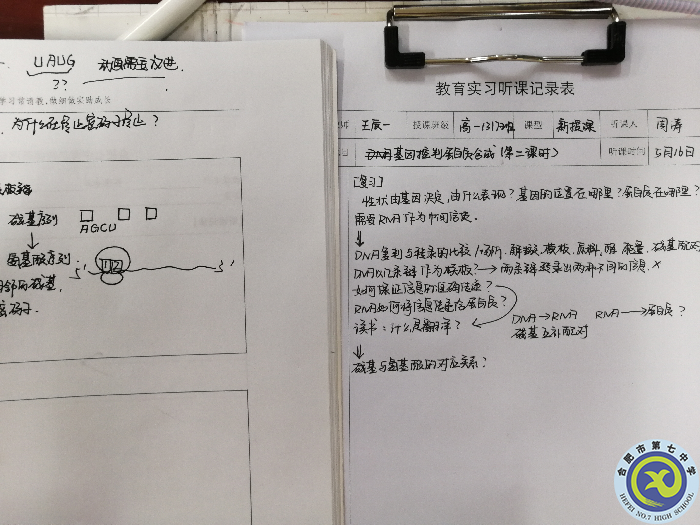 UAUG 动画需要改进.
3?
学习常请教,做细做实助成长
为什么在终止密码子停止?
碱基序列
AGCU
↓
氨基酸序列
邻的碱基.
密码子.
教育实习听课记录表
授课班级 高一(31)班 课型 新授课 听课人 周涛
基因指导蛋白质合成(第二课时) 听课时间 5月16日
[复习]
性状由基因决定,由什么表现?基因的位置在哪里?蛋白质在哪里?
需要RNA作为中间信使.
↓
DNA复制与转录的比较/场所.解旋.模板.原料.酶.能量.碱基配对
DNA以2条链作为模板?→两条链转录出两种不同的信息.×
如何保证信息的准确传递?
RNA如何将信息传递给蛋白质?
DNA→RNA RNA→蛋白质?
读书:什么是翻译?
碱基互补配对
↓
碱基与氨基酸的对应关系?
合肥市第七中学
HEFEI NO.7 HIGH SCHOOL